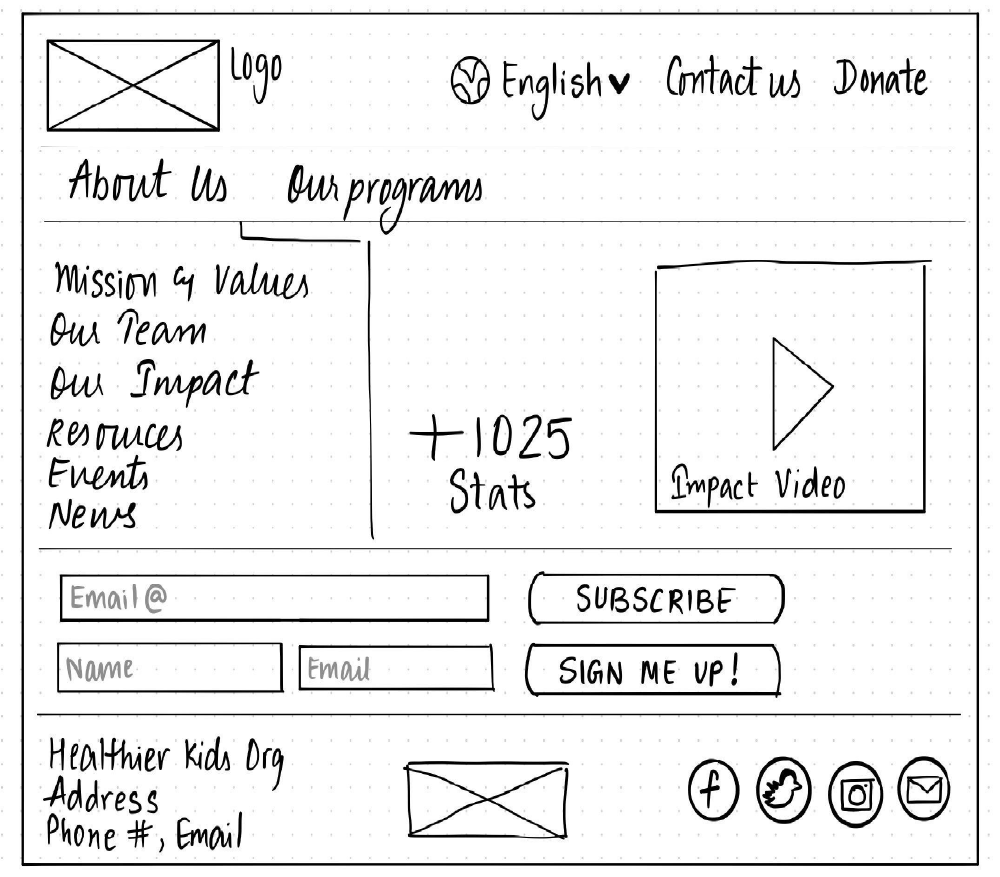 Logo
English Contact us Donate
About Us Our programs
Mission & Values
Our Team
Our Impact
Resources
Events
News
+1025
Stats
Impact Video
Email@
SUBSCRIBE
Name
Email
SIGN ME UP!
Healthier Kids Org
Address
Phone #, Email